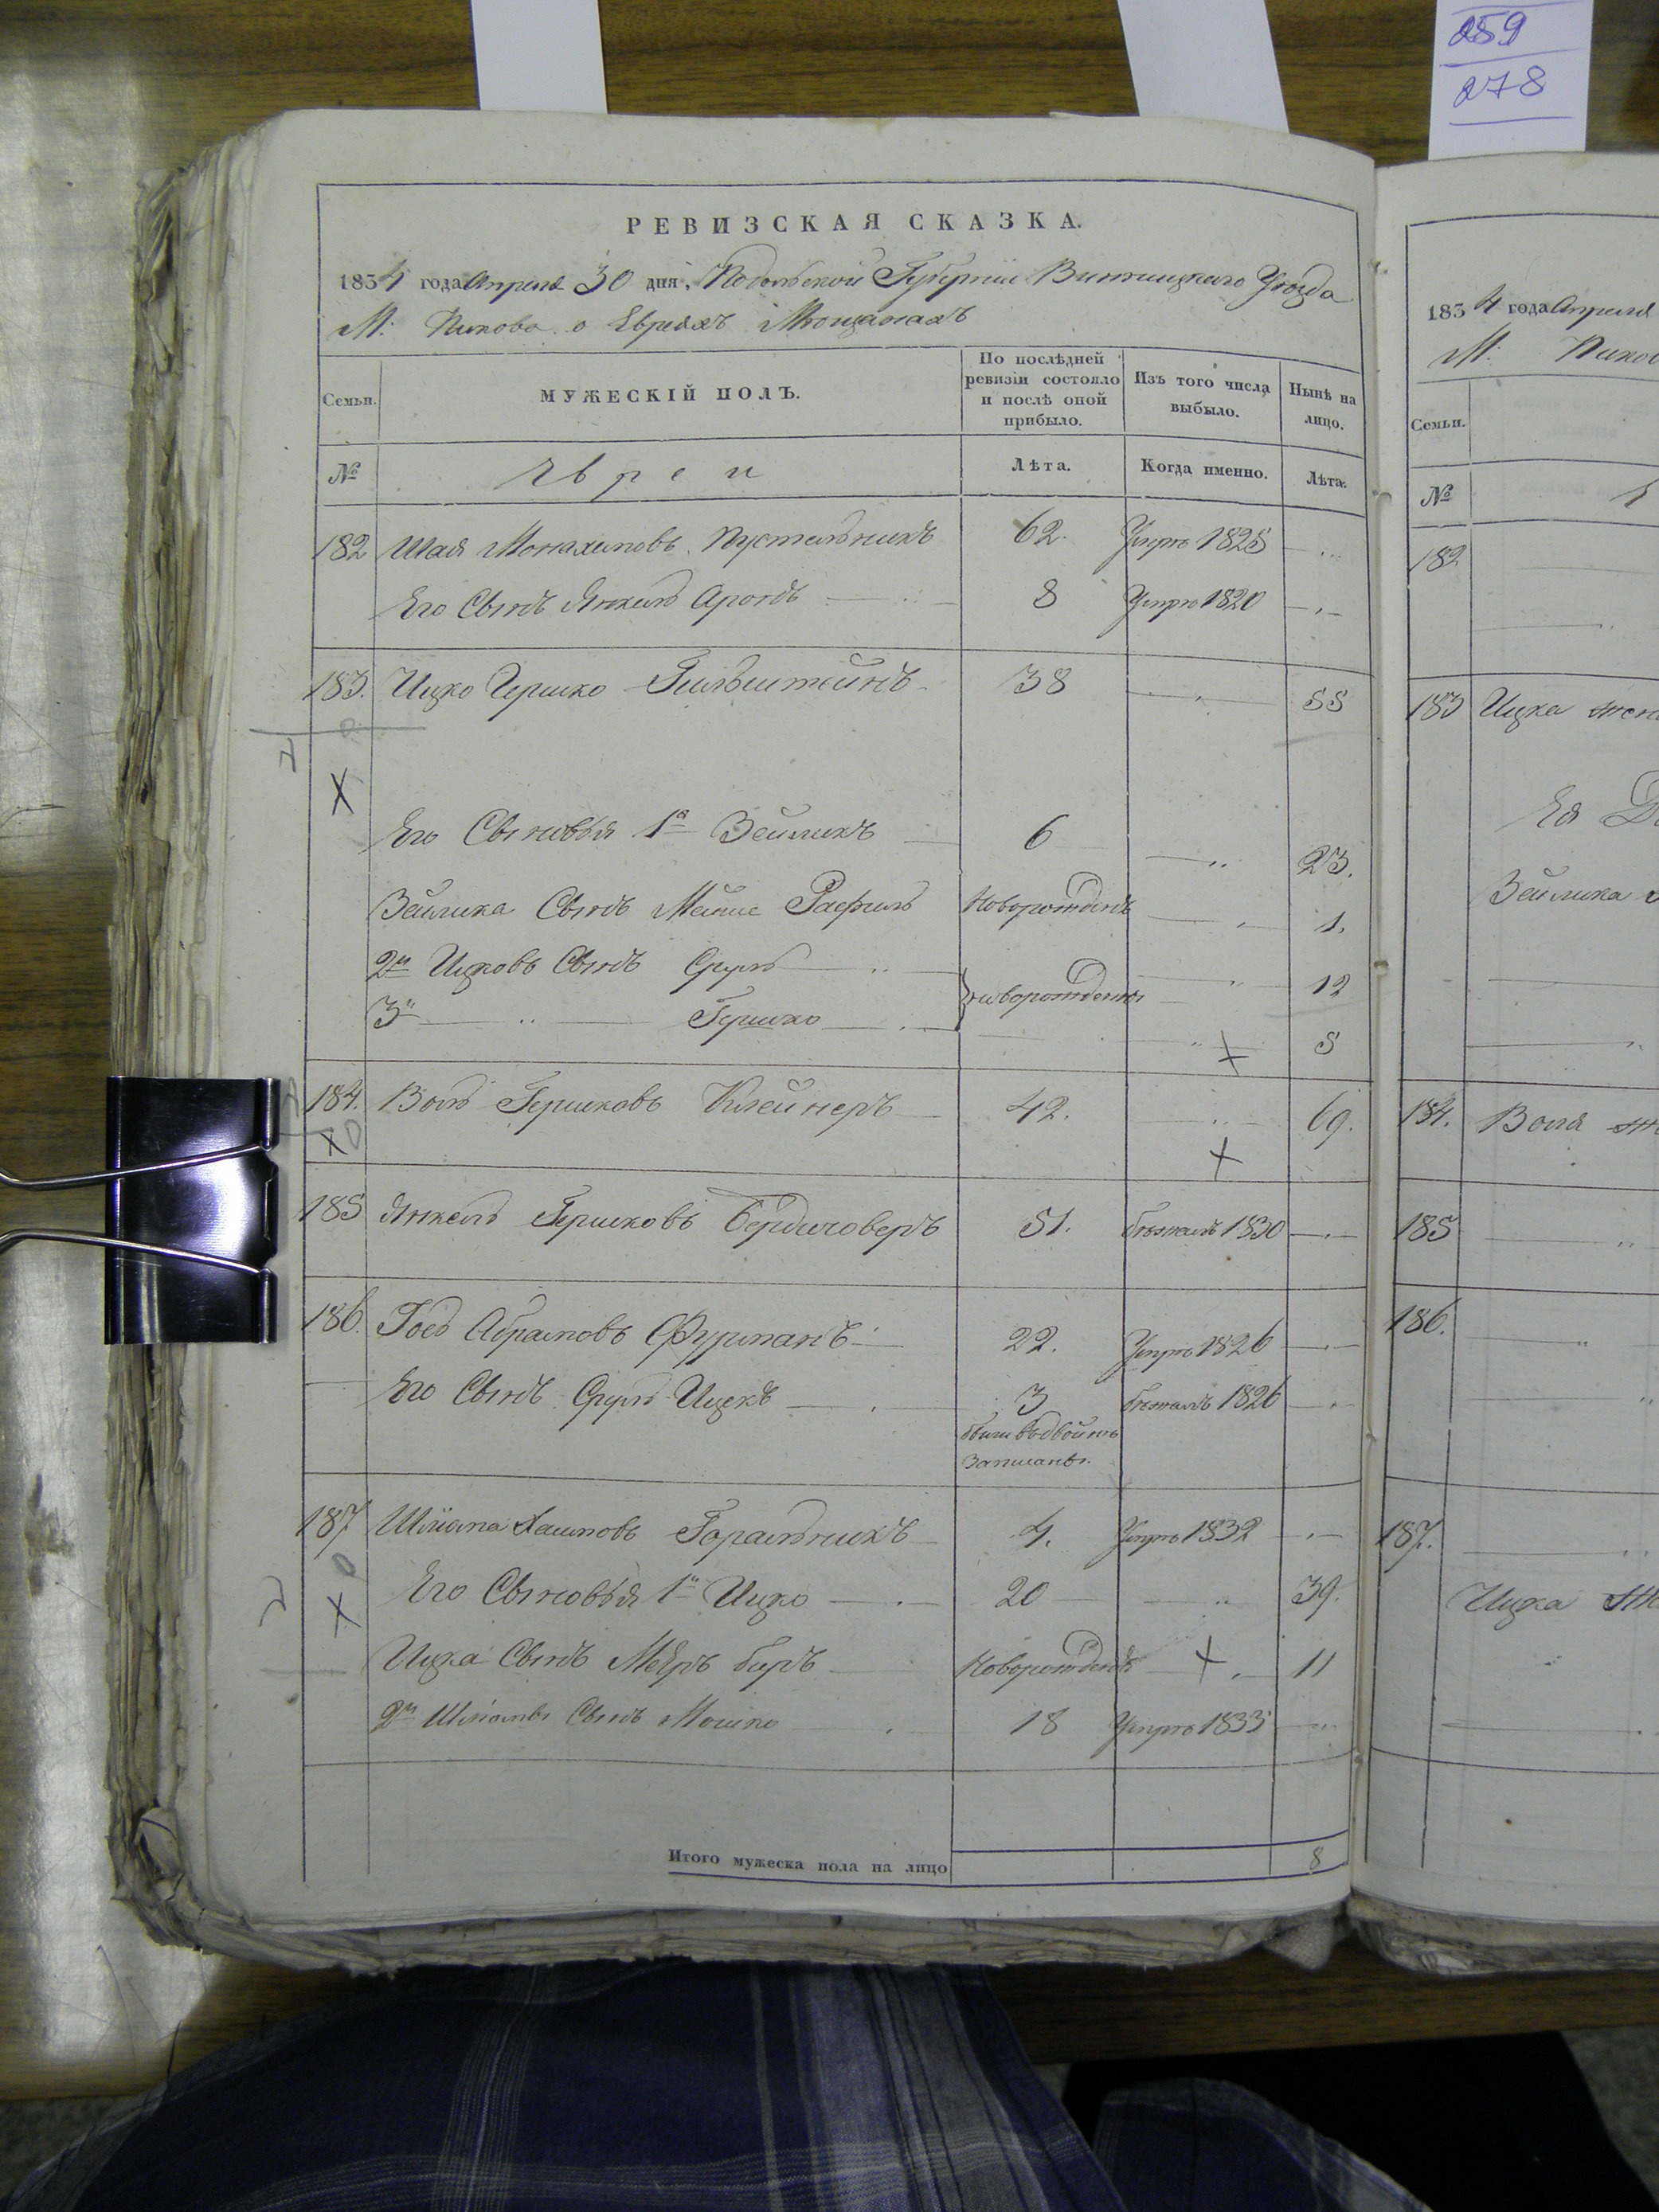 259
278
РЕВИЗСКАЯ СКАЗКА.
1834 года Апреля 30 дня, Подольской Губернии Винницкаго Уезда
М: Пикова о Евреяхъ Мещанахъ
Семьи.
МУЖЕСКІЙ ПОЛЪ.
По послѣдней ревизіи состояло и послѣ оной прибыло.
Изъ того числа выбыло.
Нынѣ на лицо.
№
Евреи
Лѣта.
Когда именно.
Лѣта.
182 Шая Монахимовъ Пустельникъ 62. Умре 1825
Его Сынъ Янкель Аронъ 8 Умре 1820
183. Ицко Гершко 38 55
Его Сыновья 1й Зейликъ 6 23.
Зейлика Сынъ Рафиль Новорожденъ 1.
2й Ицковъ Сынъ Сруль 12
новорожденны
3й Гершко 5
184. Воль Гершковъ Клейнеръ 42. 69.
185 Янкель Гершковъ Бердичоверъ 51. бежалъ 1830
186. Абрамовъ Фурманъ 22. Умре 1826
Его Сынъ Сруль Ицекъ 3 бежалъ 1826
были вдвойне
записаны.
187 Шлиома Хаимовъ Горальникъ 4. Умре 1832
Его Сыновья 1й Ицко 20 39.
Ицка Сынъ Меер беръ Новорожденъ 11
2й Шліомы Сынъ Мошко 18 Умре 1833
Итого мужеска пола на лицо 8
1834 года Апреля
М:
Семьи.
№
182
183 Ицка жена
Ея
Зейлика
184. Воля
185
186.
187.
Ицка